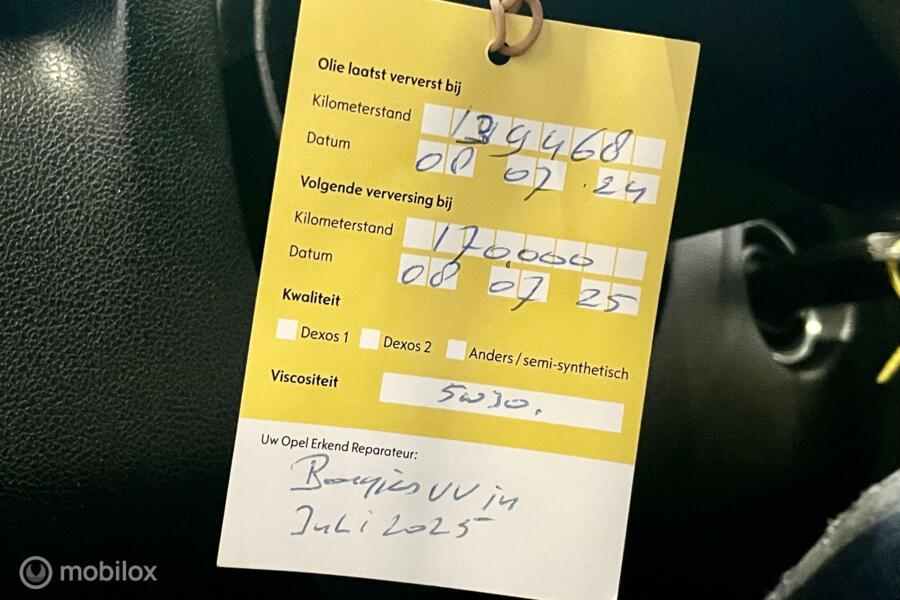 Olie laatst ververst bij
Kilometerstand 139468
Datum 08 07 24
Volgende verversing bij
Kilometerstand 170.000
Datum 08 07 25
Kwaliteit
Dexos 1 Dexos 2 Anders / semi-synthetisch
Viscositeit 5w30.
Uw Opel Erkend Reparateur:
Bougies VV in
Juli 2025
mobilox